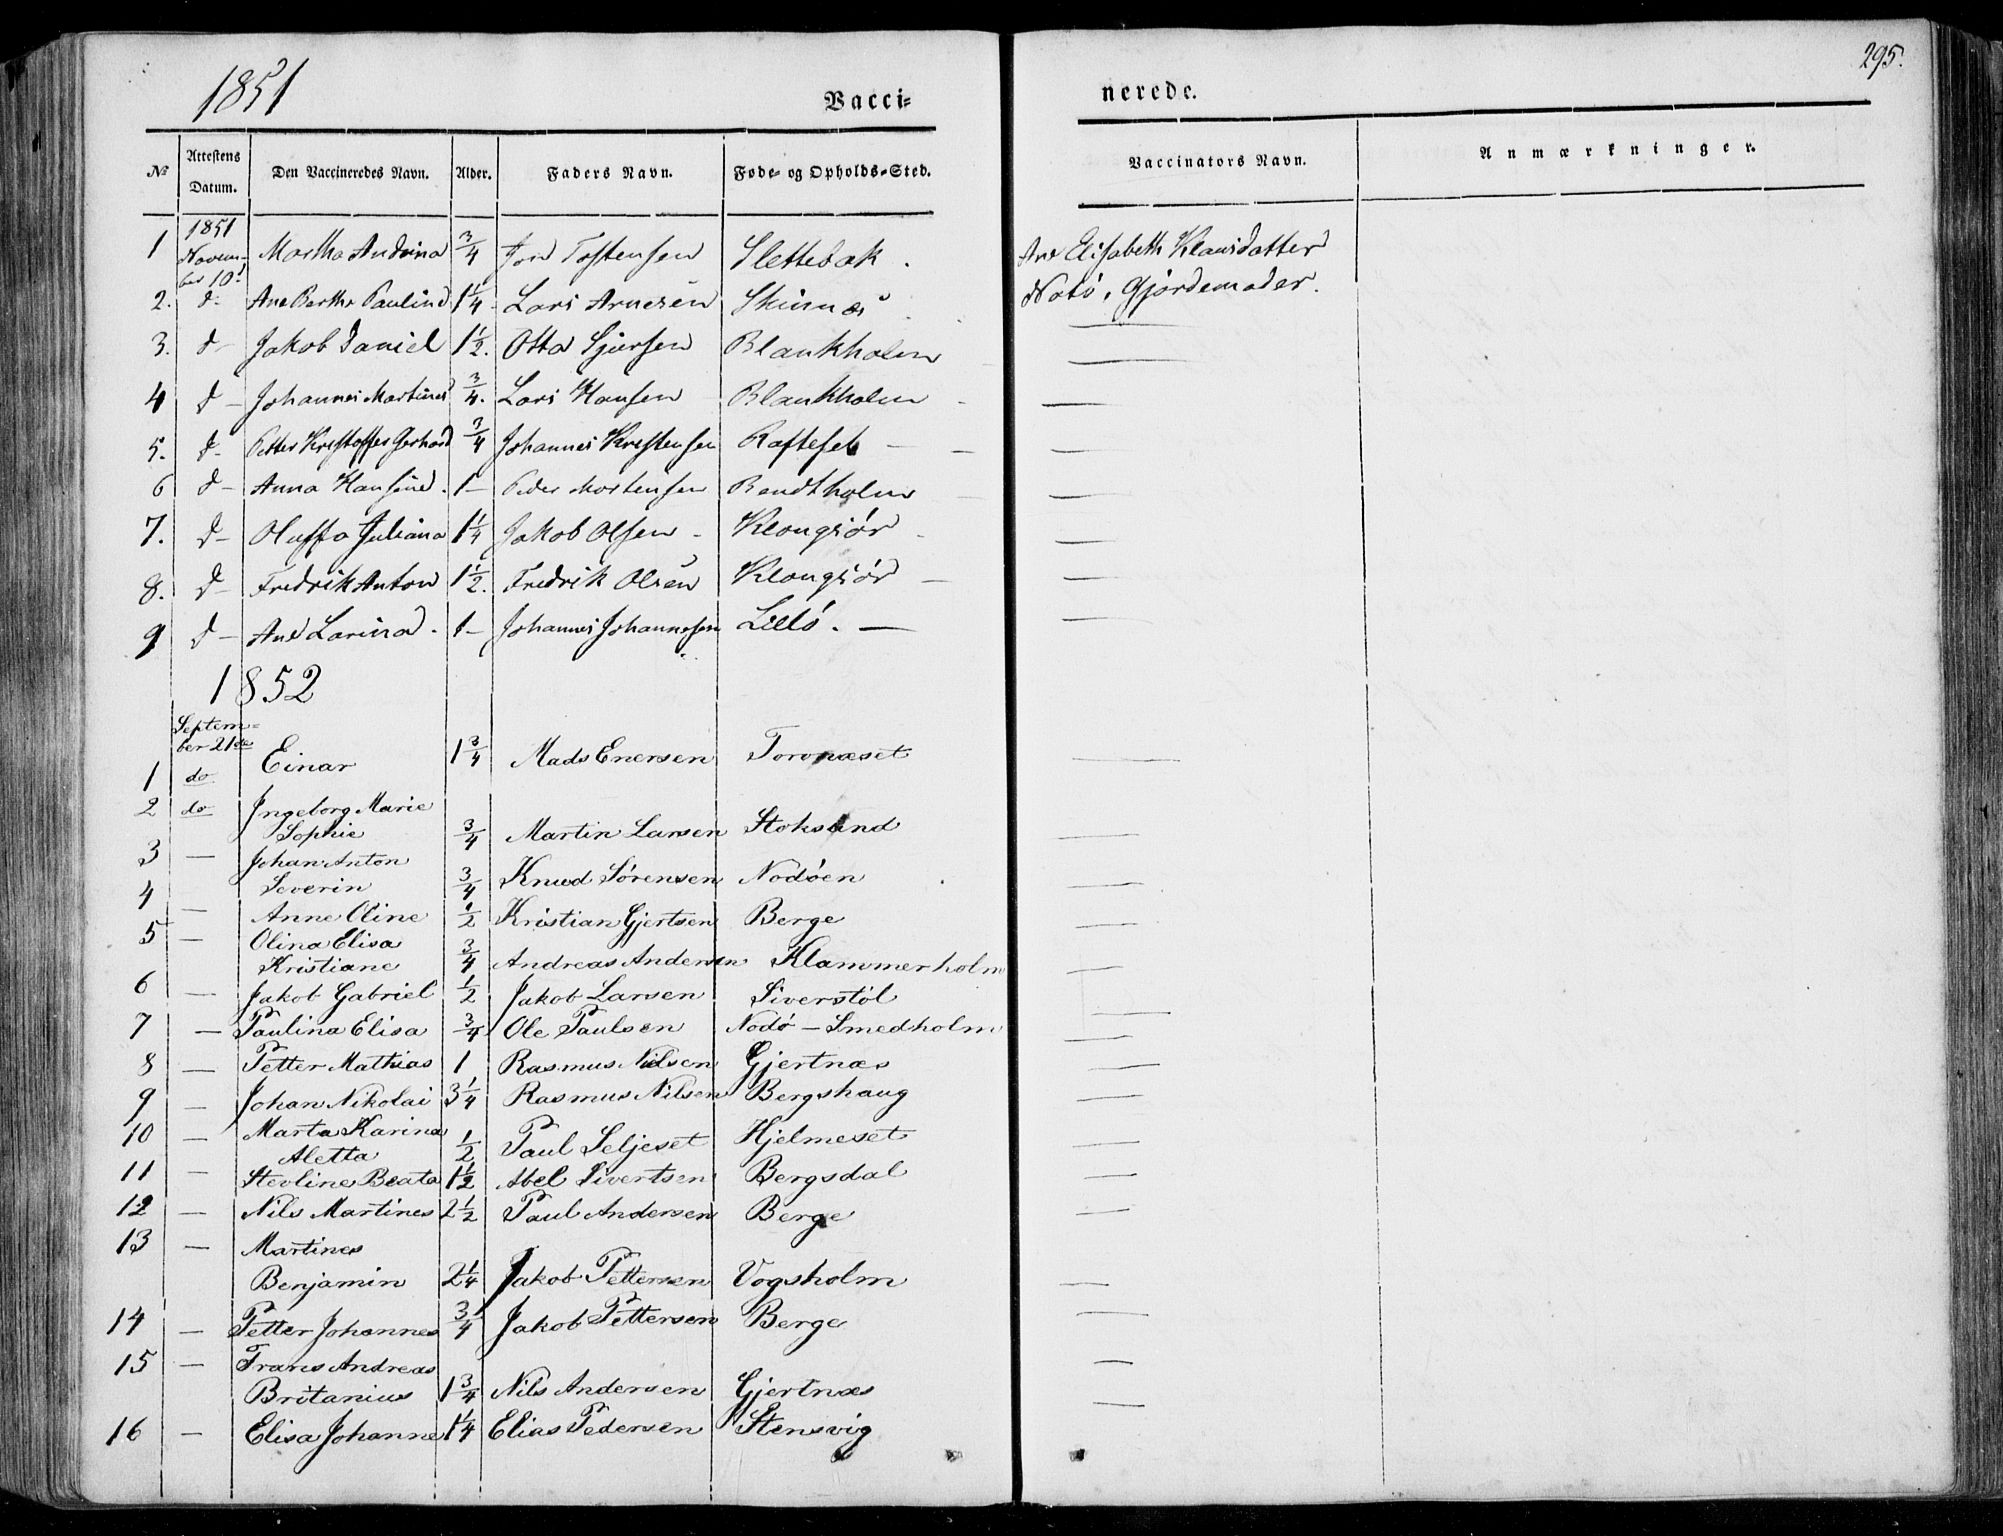 1851
295.
Vacci=
nerede.
№
Attestens Datum.
Den Vaccineredes Navn.
Alder.
Faders Navn.
Føde= og Opholds=Sted.
Vaccinators Navn.
Anmærkninger.
1 1851 Novem- ber 10d Martha Andrina 3/4 Jon Tostensen Slettebak. Ane Elisabeth Klausdatter
2. d- Ane Berthe Paulina 1 1/4 Lars Arnesen Skinnes Notö, Gjordemoder.
3. d- Jakob Daniel 1 1/2. Otto Sjursen Blankholm —
4 d- Johannes Martines 3/4. Lars Hansen Blankholm - —
5. d- Petter Kristoffer Gerhard 3/4 Johannes Kristensen Rafteset — —
6 d- Anna Hansine. 1- Peder Mortensen Bendtholm - —
7. d- Oluffa Juliana 1 1/4 Jakob Olsen - Klongsör - —
8. d- Fredrik Anton 1 1/2. Fredrik Olsen Klongsör - —
9 d- Ane Larina. 1- Johannes Johannesen Lillö. — —
1852
Septem=
ber 21de
1 do Einar 1 3/4 Mads Enersen Torvnæset —
2 do Ingeborg Marie
Sophie 3/4 Martin Larsen Stoksund —
3 — Johan Anton
Severin 3/4 Knud Sørensen Nodöen —
4 — Anne Oline 1/2 Kristian Gjertsen Berge —
5 — Olina Elisa
Kristiane 3/4 Andreas Andersen Klammerholm —
6 — Jakob Gabriel 1/2 Jakob Larsen Siverstöl —
7 — Paulina Elisa 3/4 Ole Paulsen Nodö — Smedholm —
8 — Petter Mathias 1 Rasmus Nilsen Gjertnæs —
9 — Johan Nikolai 3 1/4 Rasmus Nilsen Bergshaug —
10 — Marta Karina
Aletta 1/2 Paul Seljeset Hjelmeset —
11 — Stevline Beata 1 1/2 Abel Sivertsen Bergsdal —
12 — Nils Martines 2 1/2 Paul Andersen Berge —
13 — Martines
Benjamin 2 1/4 Jakob Pettersen Vogsholm —
14 — Petter Johannes 3/4 Jakob Pettersen Berge —
15 — Frans Andreas
Britanius 1 3/4 Nils Andersen Gjertnæs —
16 — Elisa Johanne 1 1/4 Elias Pedersen Stensvig —